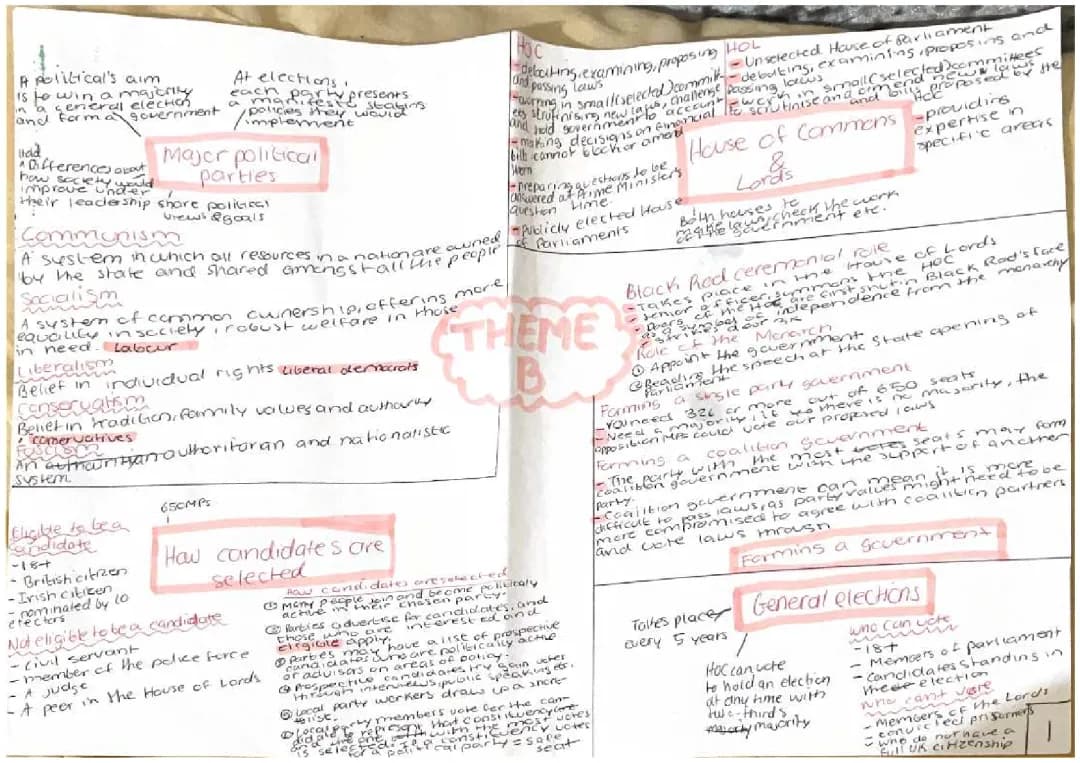 A political's aim
is to win a majority
in a general election
and form a government
At elections,
each party presents
a manifesto stating
policies they would
implement
Major political
parties
Hold
Differences about
how society would
improve under
their leadership
share political
views & goals
Communism
A system in which all resources in a nation are owned
by the state and shared amongst all the people
Socialism
A system of common ownership, offering more
equality in society, robust welfare in those
in need. Labour
Liberalism
Belief in individual rights liberal democrats
Conservatism
Belief in tradition, family values and authority
conservatives
Fascism
An authoritaran and nationalistic
system
HOC
- debating, examining, proposing
and passing laws
- working in small (selected) committ
ees scrutinising new laws, challenge
and hold government to account
- making decisions on financial
bills cannot block or amend
them
- preparing questions to be
answered at Prime Ministers
question time.
- publicly elected House
of Parliaments
HOL
- Unselected House of Parliament
- debating, examining, proposing and
passing laws
- work in small (selected) committees
to scrutinise and amend new laws
and bills proposed by the
HOC
- providing
expertise in
specific areas
House of Commons
&
Lords
Both houses to
make laws, check the work
of the government etc.
THEME
B
Black Rod ceremonial role
- Takes place in the House of Lords
- senior officer, summons the HOC
- Doors of the HOC are first shut in Black Rod's face
as a symbol of independence from the monarchy
- strikes door 3x
Role of the Monarch
① Appoint the government
② Reading the speech at the State opening of
Parliament
Forming a single party government
- You need 326 or more out of 650 seats
- Need a majority, if there is no majority, the
opposition MPs could vote out proposed laws
Forming a coalition government
- The party with the most votes seats may form
coalition government with the support of another
party.
- Coalition government can mean it is more
difficult to pass laws, as party values might need to be
more compromised to agree with coalition partners
and vote laws through
Forming a government
650MPs
How candidates are
selected
Eligible to be a
candidate
- 18+
- British citizen
- Irish citizen
- nominated by 10
electors
Not eligible to be a candidate
- civil servant
- member of the police force
- A judge
- A peer in the House of Lords
How candidates are selected
① Many people join and become politically
active in their chosen party.
② Parties advertise for candidates, and
those who are interested and
eligible apply.
③ Parties may have a list of prospective
candidates who are politically active
or advisors on areas of policy.
④ Prospective candidates try gain votes
through interviews, public speaking etc.
⑤ Local party workers draw up a short-
list.
⑥ Local party members vote for the can-
didate to represent that constituency
and the one with the most votes
is selected. If a constituency votes
for a political party = safe
seat
General elections
Takes place
every 5 years
HOC can vote
to hold an election
at any time with
two-thirds
majority
who can vote
- 18+
- Members of parliament
- candidates standing in
election
who can't vote
- Members of the Lords
- convicted prisoners
- who do not have a
full UK citizenship
1